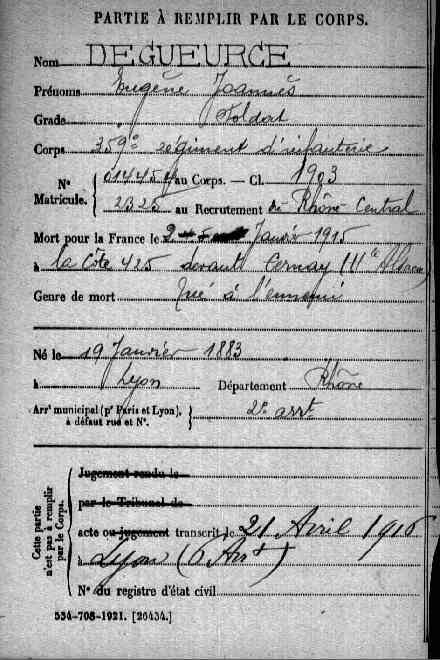 PARTIE À REMPLIR PAR LE CORPS.
Nom DEGUEURCE
Prénoms Eugène Joannès
Grade Soldat
Corps 359e régiment d'infanterie
N° Matricule. { 014454 au Corps. — Cl. 1903
2325 au Recrutement de Rhône Central
Mort pour la France le 2 Janvr 1915
à la Côte 425 devant Cernay (Hte Alsace)
Genre de mort Tué à l'ennemi
Né le 19 Janvier 1883
à Lyon Département Rhône
Arrt municipal (pr Paris et Lyon), à défaut rue et N°. } 2e arrt
Cette partie n'est pas à remplir par le Corps.
Jugement rendu le
par le Tribunal de
acte ou jugement transcrit le 21 Avril 1916
à Lyon (6 Arrt)
N° du registre d'état civil
534-708-1921. [26434.]